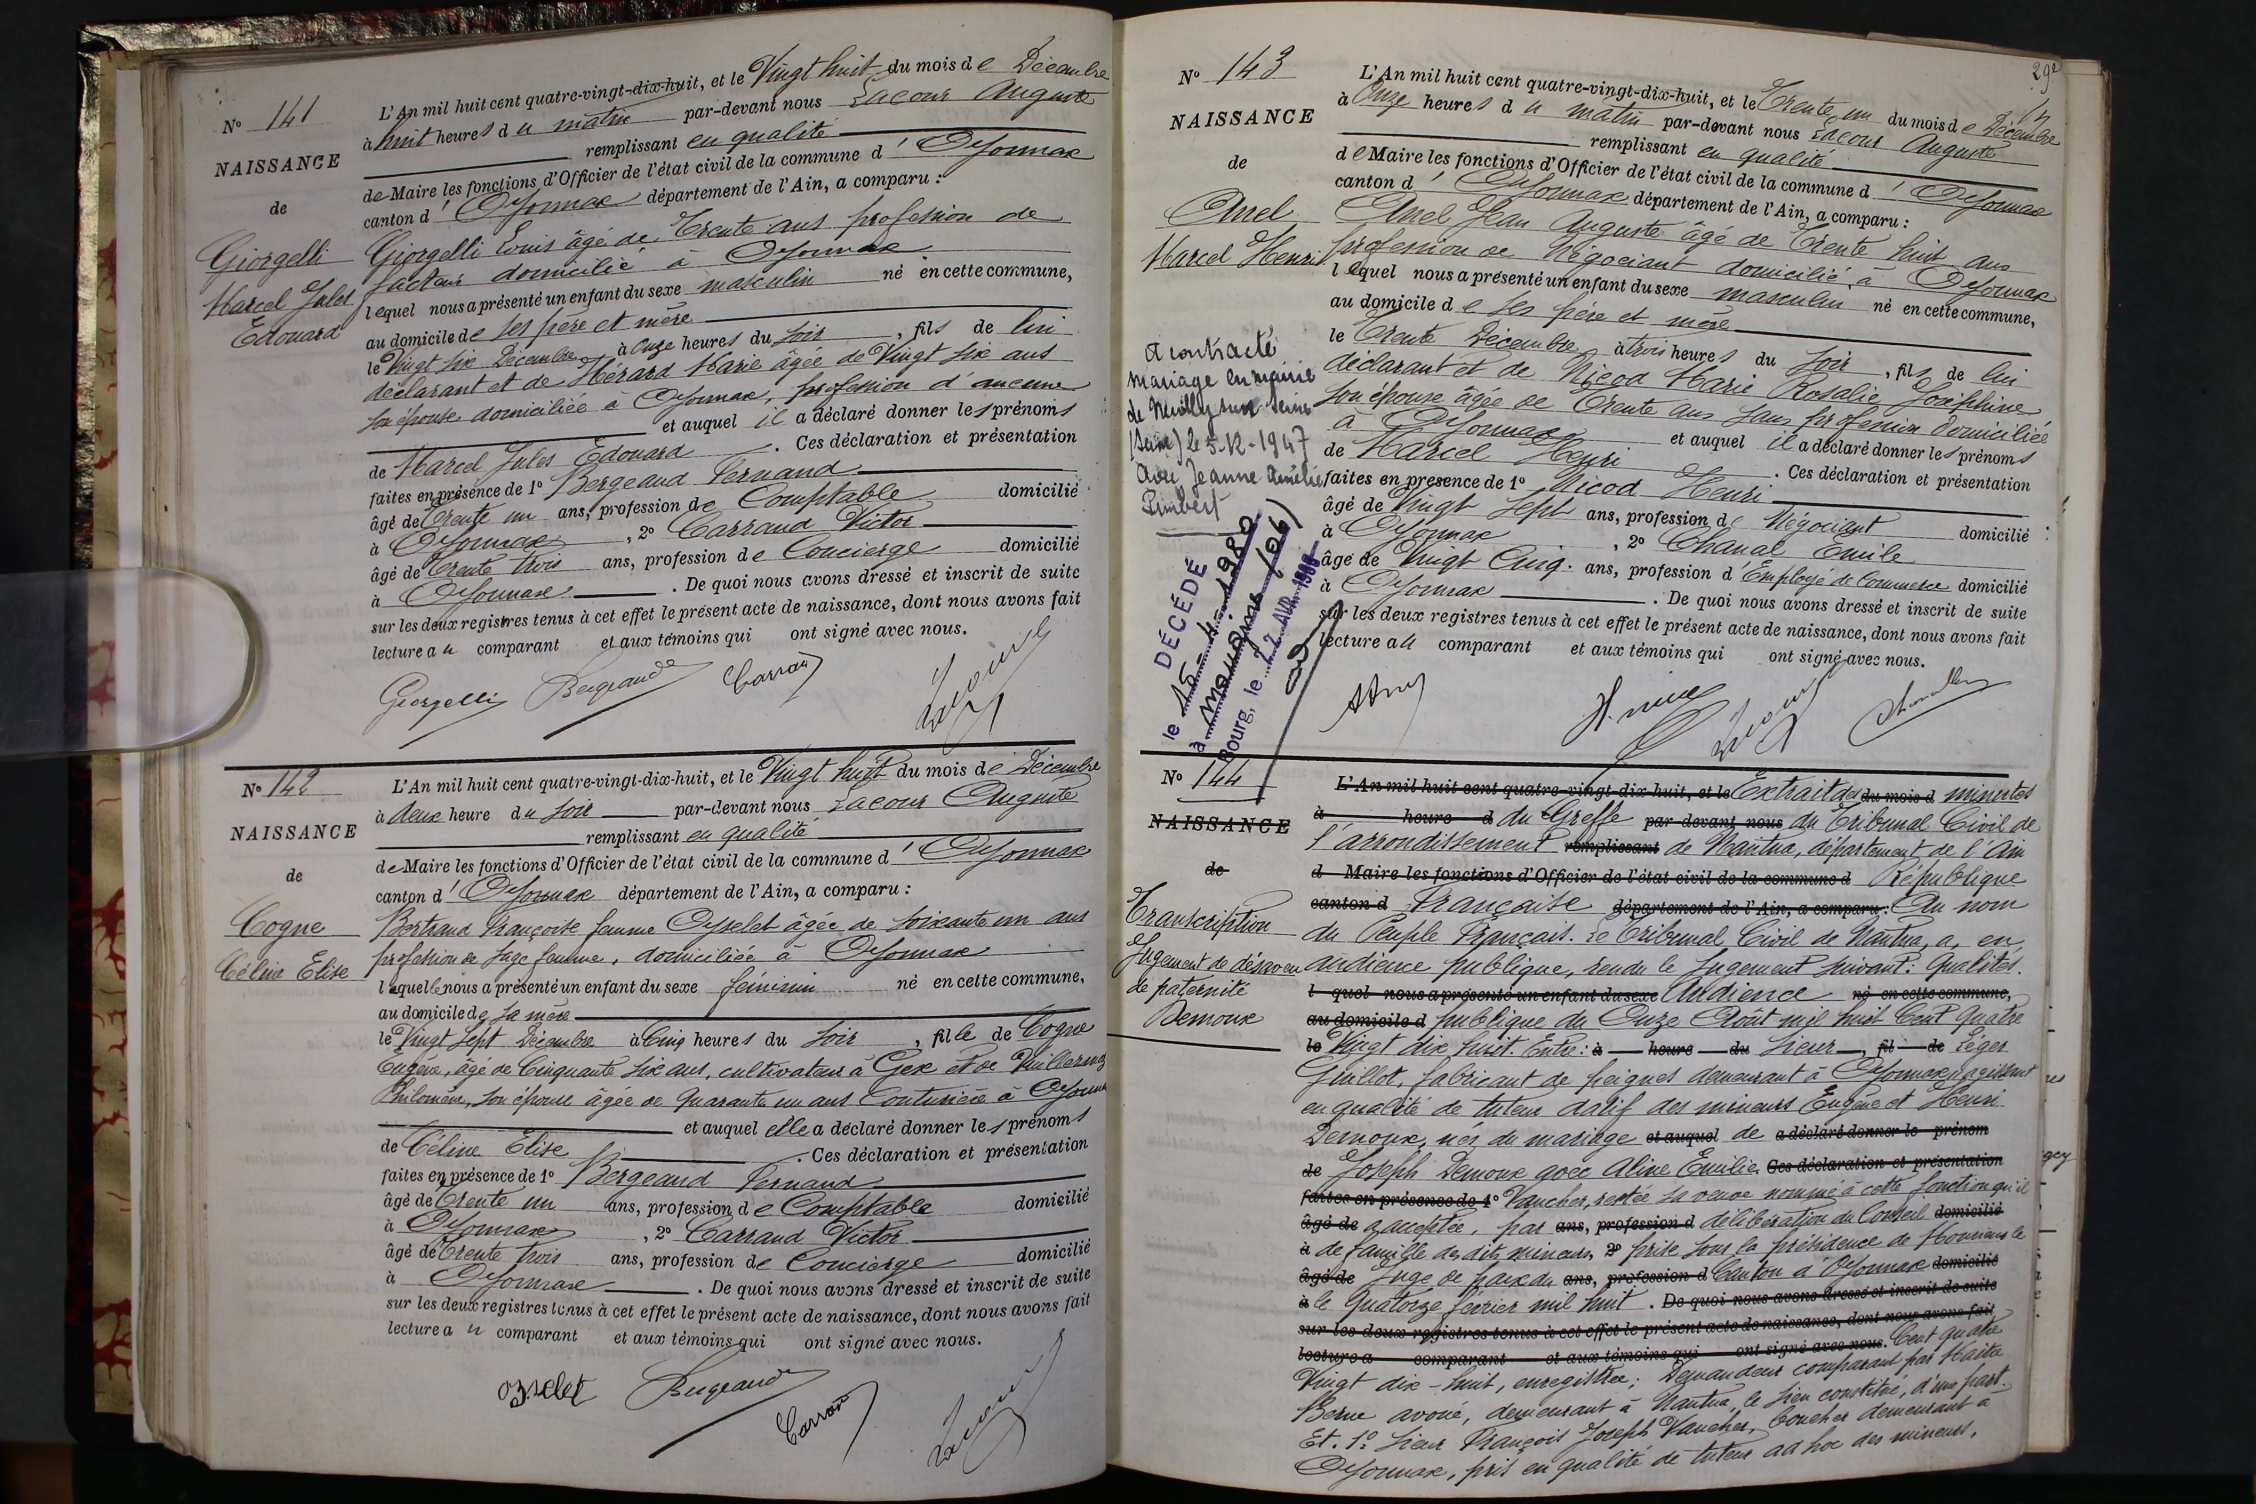 N° 141
NAISSANCE
de
Giorgelli
Marcel Jules
Edouard
L'An mil huit cent quatre-vingt-dix-huit, et le Vingt huit du mois de Décembre
à huit heures du matin par-devant nous Lacour Auguste
remplissant en qualité
de Maire les fonctions d'Officier de l'état civil de la commune d'Oyonnax
canton d'Oyonnax département de l'Ain, a comparu :
Giorgelli Louis âgé de Trente ans profession de
facteur domicilié à Oyonnax
lequel nous a présenté un enfant du sexe masculin né en cette commune,
au domicile de ses père et mère
le Vingt six Décembre à onze heures du soir, fils de lui
déclarant et de Hérard Marie âgée de Vingt six ans
son épouse domiciliée à Oyonnax, profession d'aucune
et auquel il a déclaré donner les prénoms
de Marcel Jules Edouard. Ces déclaration et présentation
faites en présence de 1° Bergeaud Fernand
âgé de Trente un ans, profession de Comptable domicilié
à Oyonnax, 2° Carraud Victor
âgé de Trente trois ans, profession de Concierge domicilié
à Oyonnax. De quoi nous avons dressé et inscrit de suite
sur les deux registres tenus à cet effet le présent acte de naissance, dont nous avons fait
lecture au comparant et aux témoins qui ont signé avec nous.
Giorgelli Bergeaud Carraud Lacour
N° 142
NAISSANCE
de
Cogne
Céline Elise
L'An mil huit cent quatre-vingt-dix-huit, et le Vingt huit du mois de Décembre
à deux heure du soir par-devant nous Lacour Auguste
remplissant en qualité
de Maire les fonctions d'Officier de l'état civil de la commune d'Oyonnax
canton d'Oyonnax département de l'Ain, a comparu :
Bertrand Françoise femme Oyselet âgée de soixante un ans
profession de sage femme, domiciliée à Oyonnax
laquelle nous a présenté un enfant du sexe féminin né en cette commune,
au domicile de sa mère
le Vingt sept Décembre à Cinq heures du soir, fille de Cogne
Eugène, âgé de Cinquante six ans, cultivateur à Gex et de Vuillermoz
Philomène, son épouse âgée de quarante un ans Couturière à Oyonnax
et auquel elle a déclaré donner les prénoms
de Céline Elise. Ces déclaration et présentation
faites en présence de 1° Bergeaud Fernand
âgé de Trente un ans, profession de Comptable domicilié
à Oyonnax, 2° Carraud Victor
âgé de Trente trois ans, profession de Concierge domicilié
à Oyonnax. De quoi nous avons dressé et inscrit de suite
sur les deux registres tenus à cet effet le présent acte de naissance, dont nous avons fait
lecture au comparant et aux témoins qui ont signé avec nous.
Ozselet Bergeaud Carraud Lacour
292
N° 143
NAISSANCE
de
Anel
Marcel Henri
a contracté
mariage en mairie
de Neuilly sur Seine
(Seine) le 5-12-1947
avec Jeanne Amélie
Limbert
DÉCÉDÉ
le 15-4-1980
à Manosque (06)
Bourg, le 22 AVR. 1980
L'An mil huit cent quatre-vingt-dix-huit, et le Trente un du mois de Décembre
à Onze heures du matin par-devant nous Lacour Auguste
remplissant en qualité
de Maire les fonctions d'Officier de l'état civil de la commune d'Oyonnax
canton d'Oyonnax département de l'Ain, a comparu :
Anel Jean Auguste âgé de Trente huit ans
profession de Négociant domicilié à Oyonnax
lequel nous a présenté un enfant du sexe masculin né en cette commune,
au domicile de ses père et mère
le Trente Décembre à trois heures du soir, fils de lui
déclarant et de Nicod Marie Rosalie Joséphine
son épouse âgée de Trente ans sans profession domiciliée
à Oyonnax et auquel il a déclaré donner les prénoms
de Marcel Henri. Ces déclaration et présentation
faites en présence de 1° Nicod Henri
âgé de Vingt sept ans, profession de Négociant domicilié
à Oyonnax, 2° Chanal Emile
âgé de Vingt Cinq ans, profession d'Employé de Commerce domicilié
à Oyonnax. De quoi nous avons dressé et inscrit de suite
sur les deux registres tenus à cet effet le présent acte de naissance, dont nous avons fait
lecture au comparant et aux témoins qui ont signé avec nous.
Lacour
N° 144
NAISSANCE
de
Transcription
Jugement de désaveu
de paternité
Demoux
L'An mil huit cent quatre-vingt-dix-huit, et le Extrait des du mois d minutes
à heure d du Greffe par-devant nous du Tribunal Civil de
l'arrondissement remplissant de Nantua, département de l'Ain
d Maire les fonctions d'Officier de l'état civil de la commune d République
canton d Française département de l'Ain, a comparu : Au nom
du Peuple Français. Le Tribunal Civil de Nantua, a, en
audience publique, rendu le Jugement suivant : Qualités.
l quel nous a présenté un enfant du sexe Audience né en cette commune,
au domicile d publique du Onze Août mil huit Cent Quatre
le Vingt dix huit. Entre : à heure du Sieur, fil de Léger
Guillot, fabricant de peignes demeurant à Oyonnax, agissant
en qualité de tuteur datif des mineurs Eugène et Henri
Demoux, nés du mariage et auquel de a déclaré donner le prénom
de Joseph Demoux avec Aline Emilie Ces déclaration et présentation
faites en présence de 1° Vaucher, restée sa veuve nommé à cette fonction qu'il
âgé de a acceptée, par ans, profession d délibération du Conseil domicilié
à de famille des dits mineurs, 2° prise sous la présidence de Monsieur le
âgé de Juge de paix du ans, profession d Canton d'Oyonnax domicilié
à le Quatorze février mil huit. De quoi nous avons dressé et inscrit de suite
sur les deux registres tenus à cet effet le présent acte de naissance, dont nous avons fait
lecture a comparant et aux témoins qui ont signé avec nous. Cent quatre
Vingt dix-huit, enregistrée ; Demandeur comparant par Maître
Berne avoué, demeurant à Nantua, le sien constitué, d'une part.
Et. 1° Sieur François Joseph Vaucher, boucher demeurant à
Oyonnax, pris en qualité de tuteur ad hoc des mineurs,